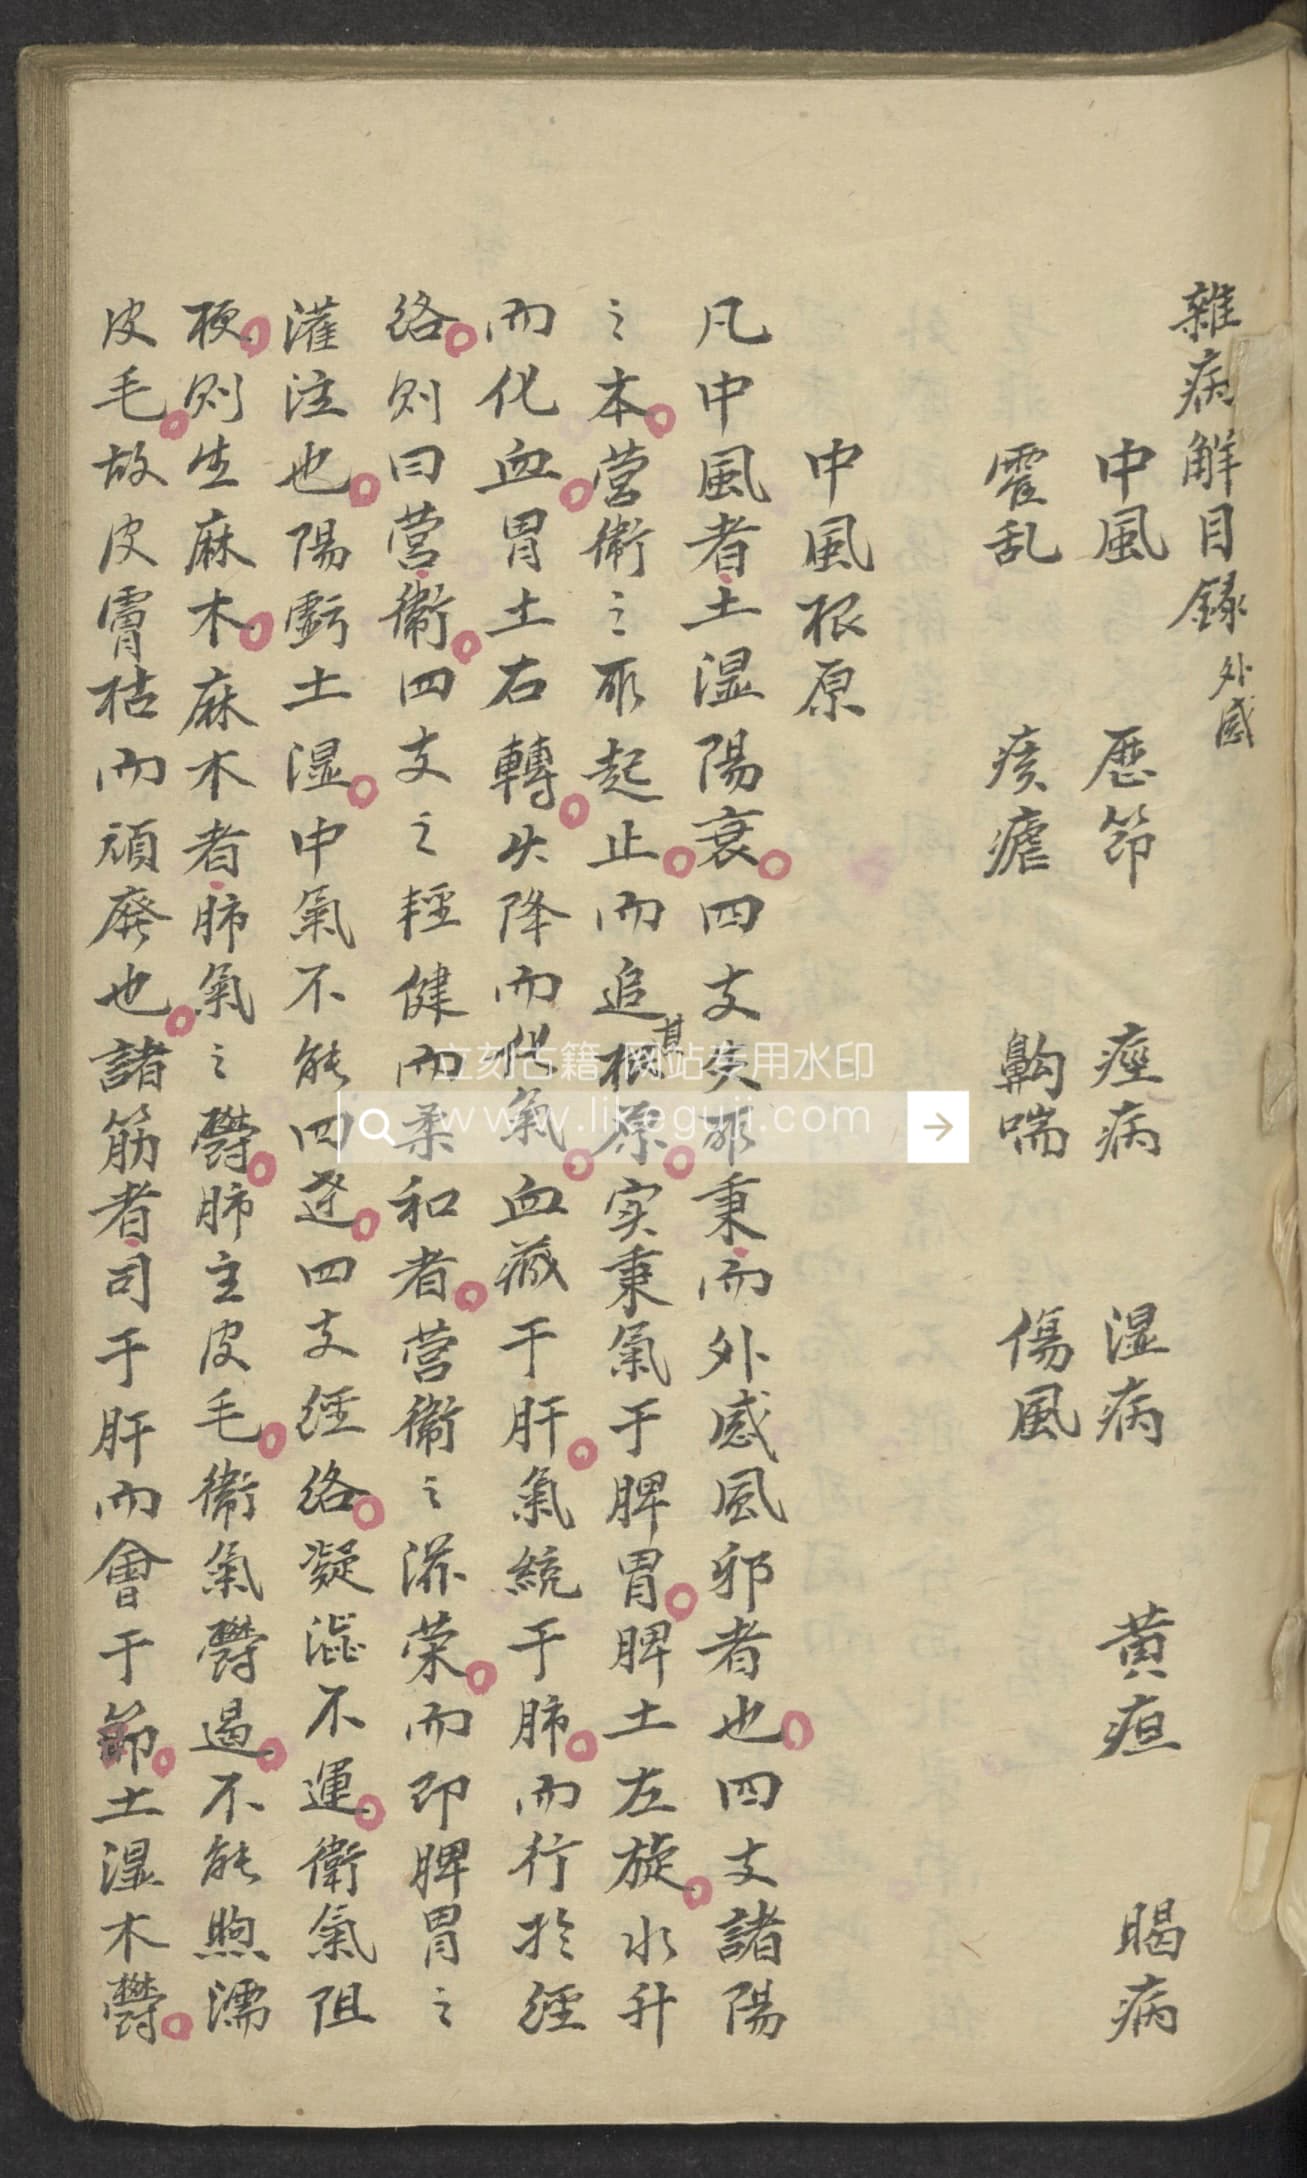 雜病解目錄 外感
中風 歷節 痙病 湿病 黄疸 暍病
霍乱 痎瘧 齁喘 傷風
中風根原
凡中風者土湿陽衰四支失所秉而外感風邪者也四支諸陽
之本营衛之所起止而追其根原实秉氣于脾胃脾土左旋水升
而化血胃土右轉火降而化氣血藏于肝氣統于肺而行於經
络则曰营衛四支之輕健而柔和者营衛之滋荣而即脾胃之
灌注也陽虧土湿中氣不能四达四支經络凝澁不運衛氣阻
梗则生麻木麻木者肺氣之欝肺主皮毛衛氣欝遏不能煦濡
皮毛故皮膚枯而頑廢也諸筋者司于肝而會于節土湿木欝
立刻古籍 网站专用水印
www.likeguji.com